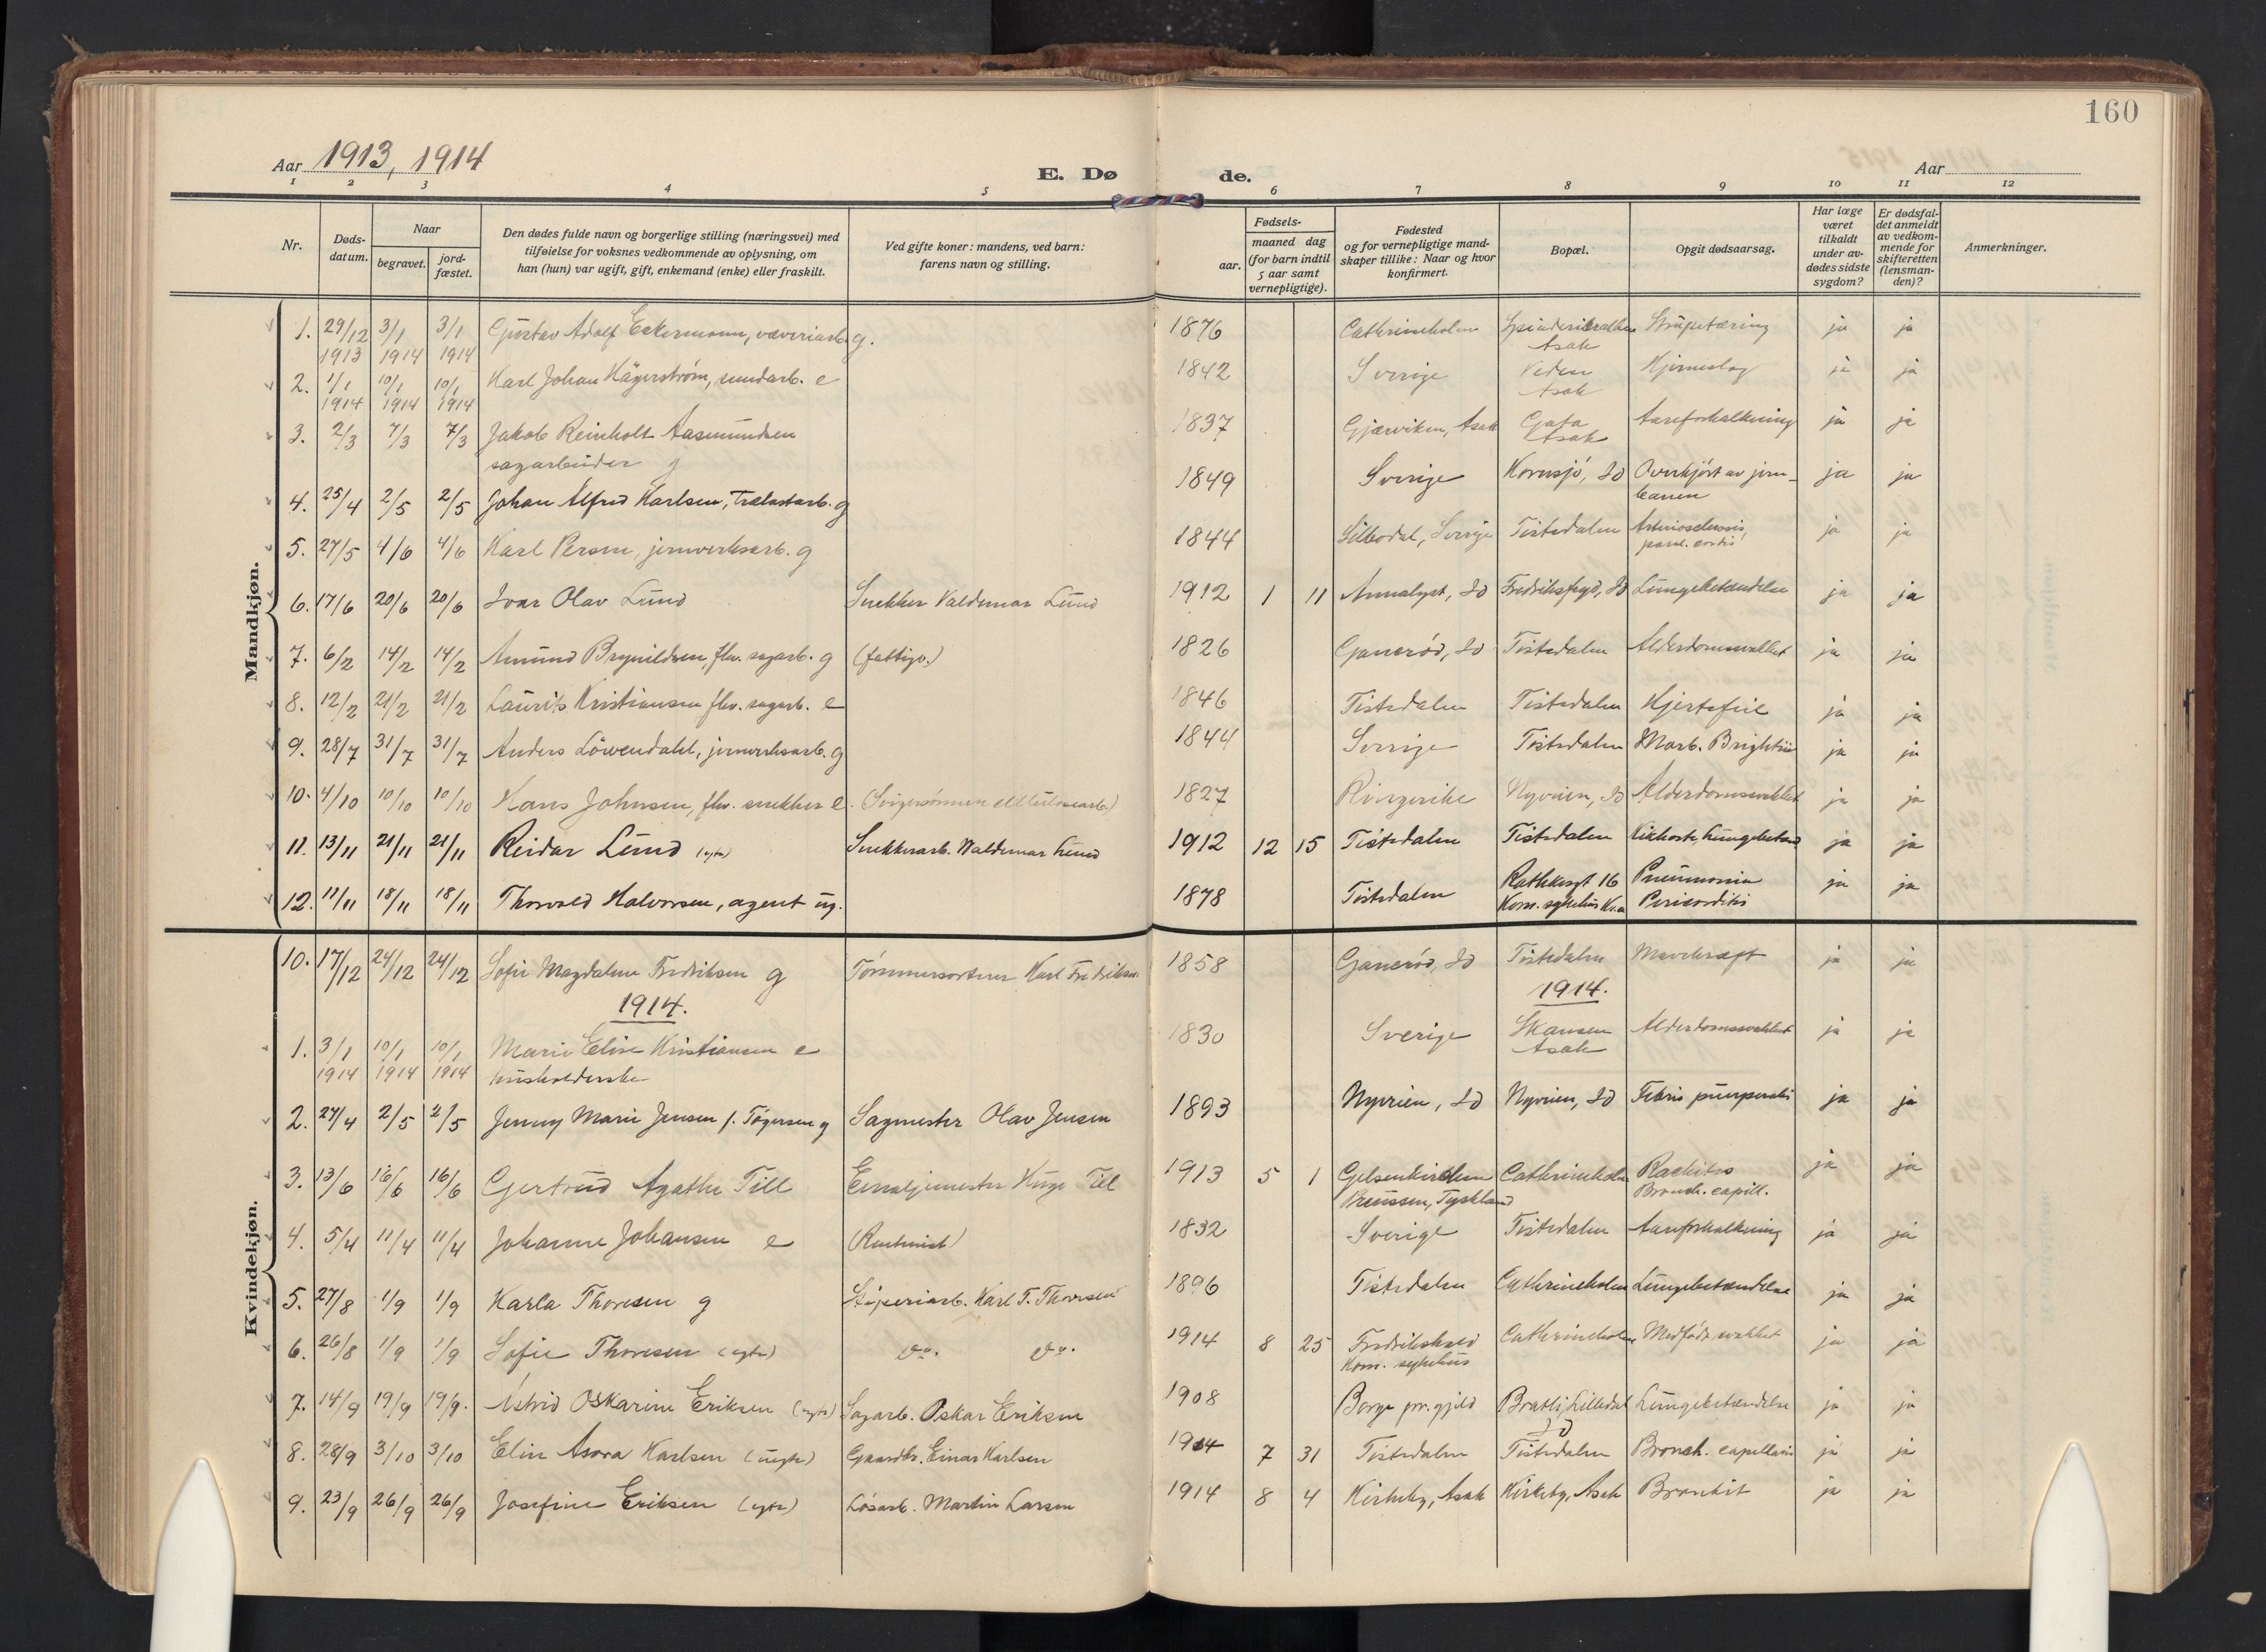 160
Aar 1913, 1914
E. Dø de.
Aar
1 2 3 4 5 6 7 8 9 10 11 12
Nr.
Døds-
datum.
Naar
begravet.
jord-
fæstet.
Den dødes fulde navn og borgerlige stilling (næringsvei) med
tilføielse for voksnes vedkommende av oplysning, om
han (hun) var ugift, gift, enkemand (enke) eller fraskilt.
Ved gifte koner: mandens, ved barn:
farens navn og stilling.
Fødsels-
aar.
maaned dag
(for barn indtil
5 aar samt
vernepligtige).
Fødested
og for vernepligtige mand-
skaper tillike: Naar og hvor
konfirmert.
Bopæl.
Opgit dødsaarsag.
Har læge
været
tilkaldt
under av-
dødes sidste
sygdom?
Er dødsfal-
det anmeldt
av vedkom-
mende for
skifteretten
(lensman-
den)?
Anmerkninger.
Mandkjøn.
1. 29/12 3/1 3/1 Gustav Adolf Eckermann, væveriarb. g. 1876 Cathrineholm Strupetæring ja ja
1913 1914 1914 Asak
2. 1/1 10/1 10/1 Karl Johan Hägerström, e 1842 Sverige Veden Hjerneslag ja ja
1914 1914 1914 Asak
3. 2/3 7/3 7/3 Jakob Reinholt Aasmundsen 1837 Gjærviken, Asak Gata Aareforkalkning ja ja
sagarbeider g Asak
4. 25/4 2/5 2/5 Johan Alfred Karlsen, Trælastarb. g 1849 Sverige Kornsjø, Id Overkjørt av jern- ja ja
banen
5. 27/5 4/6 4/6 Karl Person, jernverksarb. g 1844 Silbodal, Sverige Tistedalen Arteriosclerosis, ja ja
paral. cordis
6. 17/6 20/6 20/6 Ivar Olav Lund Snekker Valdemar Lund 1912 1 11 Annalyst, Id Lungebetændelse ja ja
7. 6/2 14/2 14/2 Amund Brynildsen, fhv. sagarb. g (fattigv.) 1826 Ganerød, Id Tistedalen Alderdomssvakhet ja ja
8. 12/2 21/2 21/2 Laurits Kristiansen fhv. sagarb. e 1846 Tistedalen Tistedalen Hjertefeil ja ja
9. 28/7 31/7 31/7 Anders Löwendahl, jernverksarb. g 1844 Sverige Tistedalen Morb. Brightii ja ja
10. 4/10 10/10 10/10 Hans Johnsen, fhv. snekker e. (Svigersønnen cellulosearb.) 1827 Ringerike Nyveien, Id Alderdomssvakhet ja ja
11. 13/11 21/11 21/11 Reidar Lund (egte) Snekkerarb. Valdemar Lund 1912 12 15 Tistedalen Tistedalen Kikhoste, Lungebetænd ja ja
12. 11/11 18/11 18/11 Thorvald Halvorsen, agent ug. 1878 Tistedalen Rathkesgt 16 Pneumonia ja ja
Kom. sykehus Kr.a Pericarditis
Kvindekjøn.
10. 17/12 24/12 24/12 Sofie Magdalene Fredriksen g Tømmersorterer Karl Fredriksen 1858 Ganerød, Id Tistedalen Mavekræft ja ja
1914. 1914.
1. 3/1 10/1 10/1 Marie Elise Kristiansen e 1830 Sverige Skansen Alderdomssvakhet ja ja
1914 1914 1914 husholderske Asak
2. 27/4 2/5 2/5 Jenny Marie Jensen f. Tøgersen g Sagmester Olav Jensen 1893 Nyveien, Id Nyveien, Id Febris puerperalis ja ja
3. 13/6 16/6 16/6 Gertrud Agathe Till Emaljemester Hugo Till 1913 5 1 Gelsenkirchen Cathrineholm Rachitis ja ja
Preussen, Tyskland Bronch. capill.
4. 5/4 11/4 11/4 Johanne Johansen e 1832 Sverige Tistedalen Aareforkalkning ja ja
5. 27/8 1/9 1/9 Karla Thoresen g Støperiarb. Karl T. Thoresen 1896 Tistedalen Cathrineholm Lungebetændelse ja ja
6. 26/8 1/9 1/9 Sofie Thoresen (egte) do. do. 1914 8 25 Fredrikshald Cathrineholm Medfødt svakhet ja ja
Kom. sykehus
7. 14/9 19/9 19/9. Astrid Oskarine Eriksen (egte) Sagarb. Oskar Eriksen 1908 Borge pr.gjeld Bratli, Lilledal Lungebetændelse ja ja
Id
8. 28/9 3/10 3/10 Elin Asora Karlsen (uegte) Gaardbr. Einar Karlsen 1914 7 31 Tistedalen Tistedalen Bronch. capillaris ja ja
9. 23/9 26/9 26/9 Josefine Eriksen (egte) Løsarb. Martin Larsen 1914 8 4 Kirkeby, Asak Kirkeby, Asak Bronkit ja ja